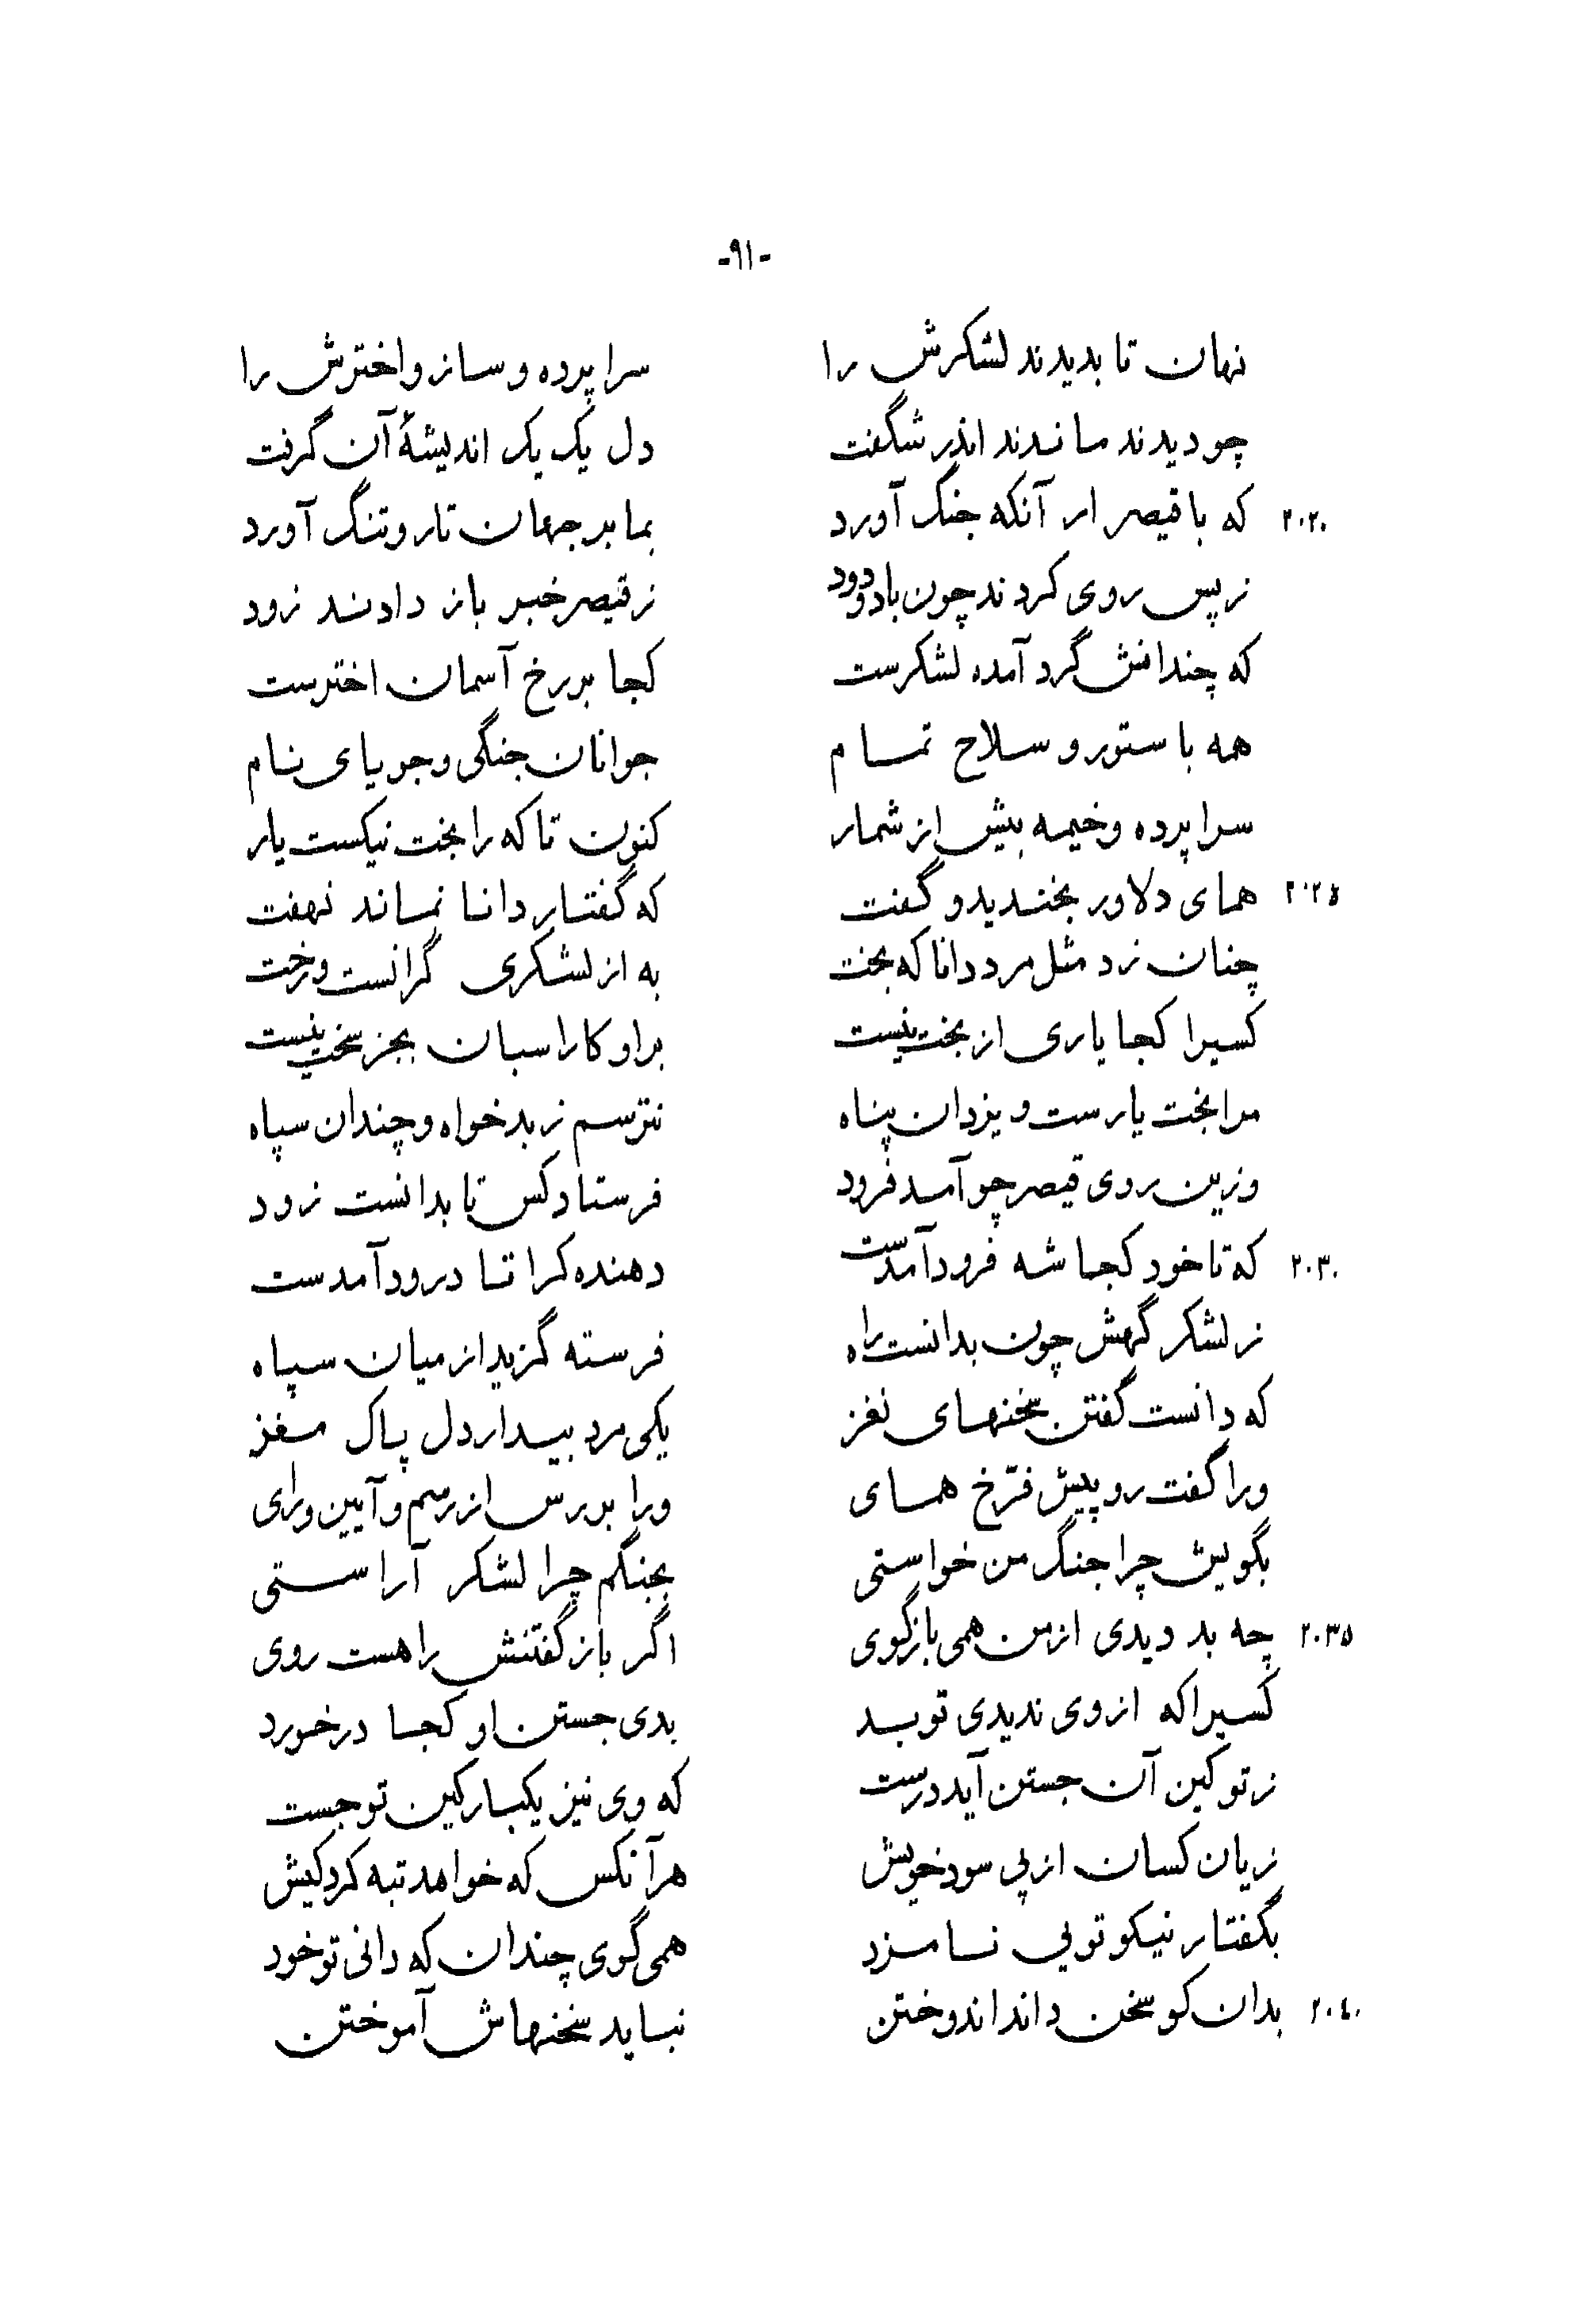 -۹۱-
نهان تا بدیدند لشکرش را سراپرده و ساز و اخترش را
چو دیدند ماندند اندر شگفت دل یک یک اندیشهٔ آن گرفت
۲۰۲۰ که با قیصر ار آنکه جنگ آورد بما بر جهان تار و تنگ آورد
ز پس روی کردند چون باد و دود ز قیصر خبر باز دادند زود
که چندانش گرد آمده لشکرست کجا بر رخ آسمان اخترست
همه با ستور و سلاح تمام جوانان جنگی و جویای نام
سراپرده و خیمه بیش از شمار کنون تا که را بخت نیکست یار
۲۰۲۵ همای دلاور بخندید و گفت که گفتار دانا نماند نهفت
چنان زد مثل مرد دانا که بخت به از لشکری گرانست و رخت
کسیرا کجا یاری از بخت نیست بر او کار اسبان بجز سخت نیست
مرا بخت یارست و یزدان پناه نترسم ز بدخواه و چندان سپاه
وزین روی قیصر چو آمد فرود فرستاد کس تا بدانست زود
۲۰۳۰ که تا خود کجا شه فرود آمدست دهنده کرا تا درود آمدست
ز لشکر گهش چون بدانست راه فرسته گزید از میان سپاه
که دانست گفتن سخنهای نغز یکی مرد بیدار دل پاک مغز
ورا گفت رو پیش فرّخ همای ورا بر رس از رسم و آیین و رای
بگویش چرا جنگ من خواستی بجنگم چرا لشکر آراستی
۲۰۳۵ چه بد دیدی از من همی بازگوی اگر باز گفتنش را هست روی
کسیرا که از وی ندیدی تو بد بدی جستن او کجا در خورد
ز تو کین آن جستن آید درست که وی نیز یکبار کین تو جست
زیان کسان از پی سود خویش هر آنکس که خواهد تبه کرد کیش
بگفتار نیکو تویی نامزد همی گوی چندان که دانی تو خود
۲۰۴۰ بدان کو سخن داند اندوختن نباید سخنهاش آموختن